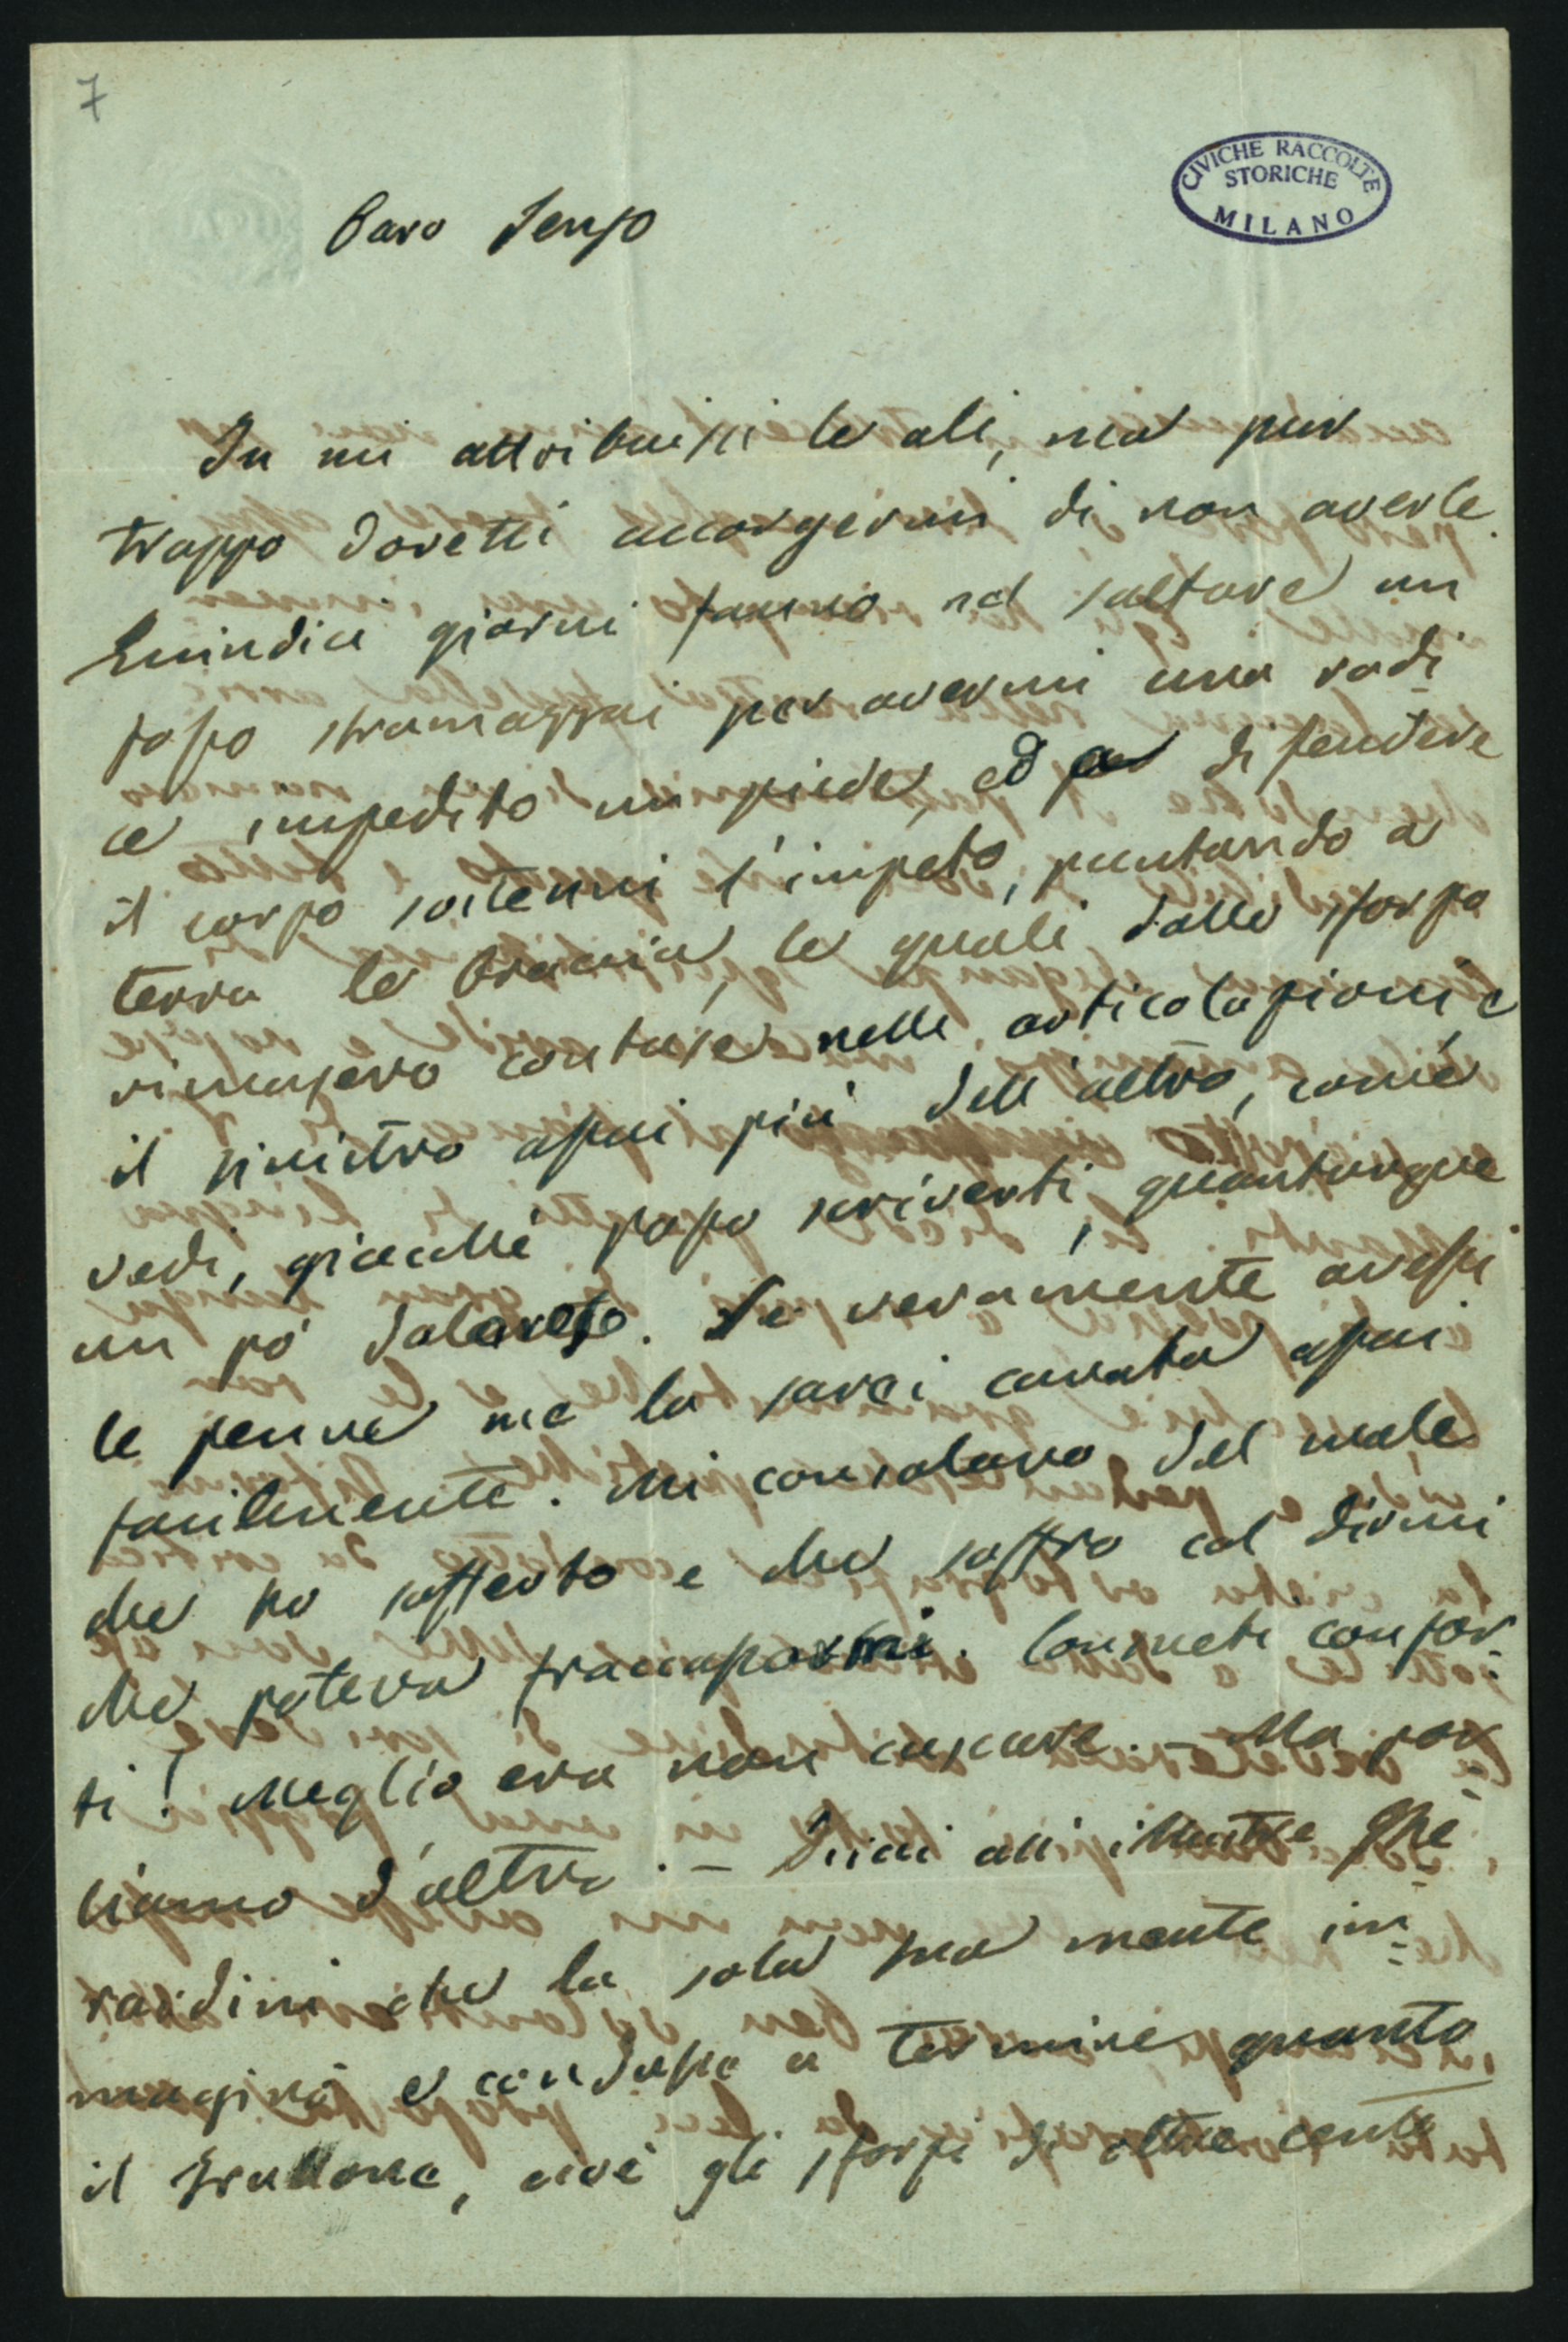 7
CIVICHE RACCOLTE
STORICHE
MILANO
Caro Renzo
Tu mi attribuissi le ali, ma pur
troppo dovetti accorgermi di non averle.
Quindici giorni fanno nel saltare un
fosso stramazzai per avermi una radi
ce impedito un piede, ed a difendere
il corpo sostenni l'impeto, puntando a
terra le braccia, le quali dallo sforzo
rimasero contuse nelle articolazioni e
il sinistro assai più dell'altro, come
vedi, giacchè posso scriverti, quantunque
un pò dolente. Se veramente avessi
le penne me la sarei cavata assai
facilmente. Mi consolano del male
che ho sofferto e che soffro col dirmi
che poteva fracassarmi. Cosimeti confor-
ti! Meglio era non cascare. - Ma par-
liamo d'altro. - Dicai all'illustre Ghe-
rardini che la sola sua mente im-
maginò e condusse a termine quanto
il Frullone, cioè gli sforzi di oltre cento